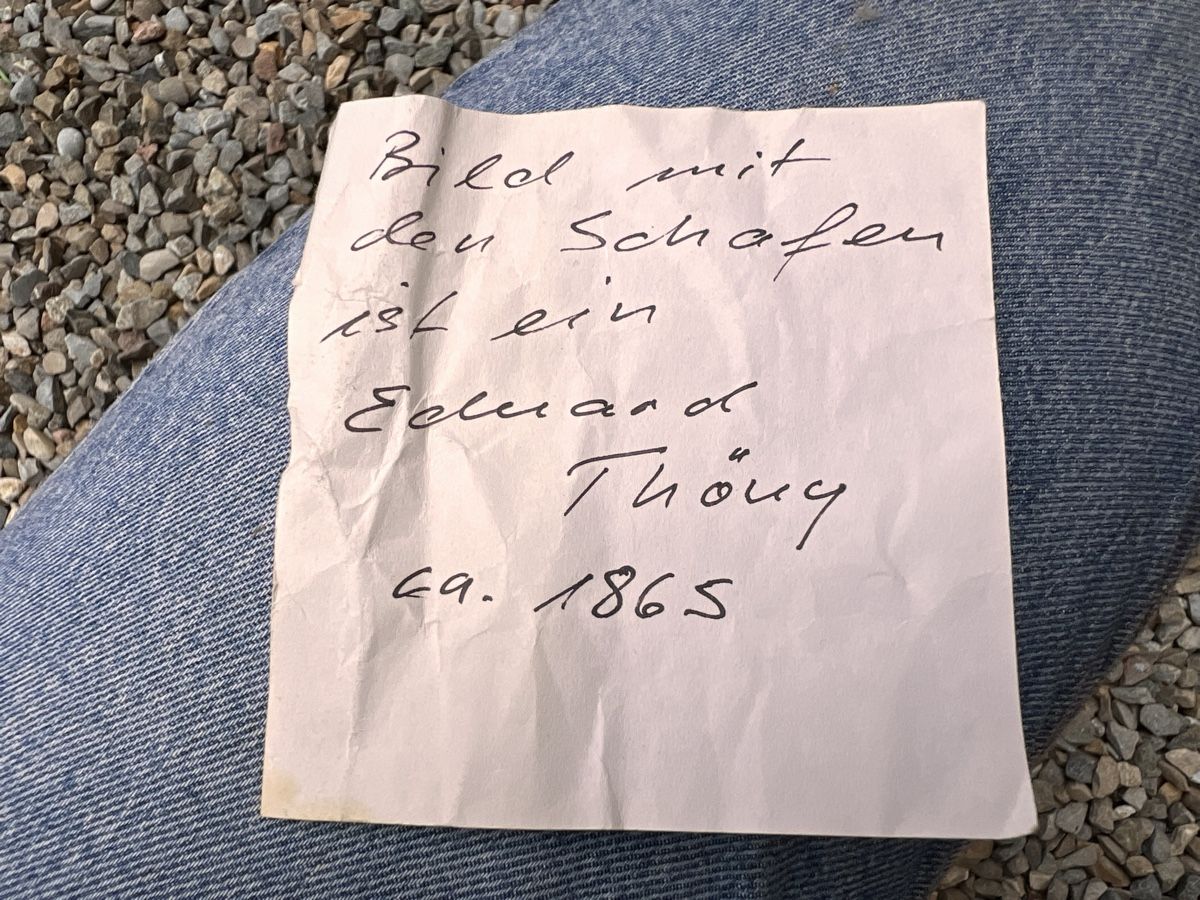 Bild mit
den Schafen
ist ein
Eduard
Thöny
ca. 1865